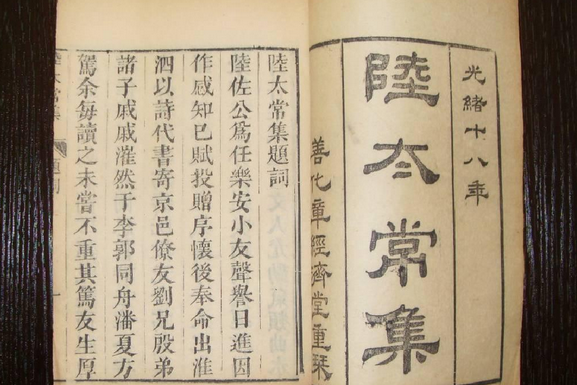 光緒十八年
陸太常集
善化章經濟堂重栞
陸太常集題詞
陸佐公爲任樂安小友聲譽日進因
作感知已賦投贈序懷後奉命出淮
泗以詩代書寄京邑僚友劉兄殷弟
諸子戚戚灌然于李郭同舟潘夏方
駕余每讀之未嘗不重其篤友生厚
陸太常集
題詞
一